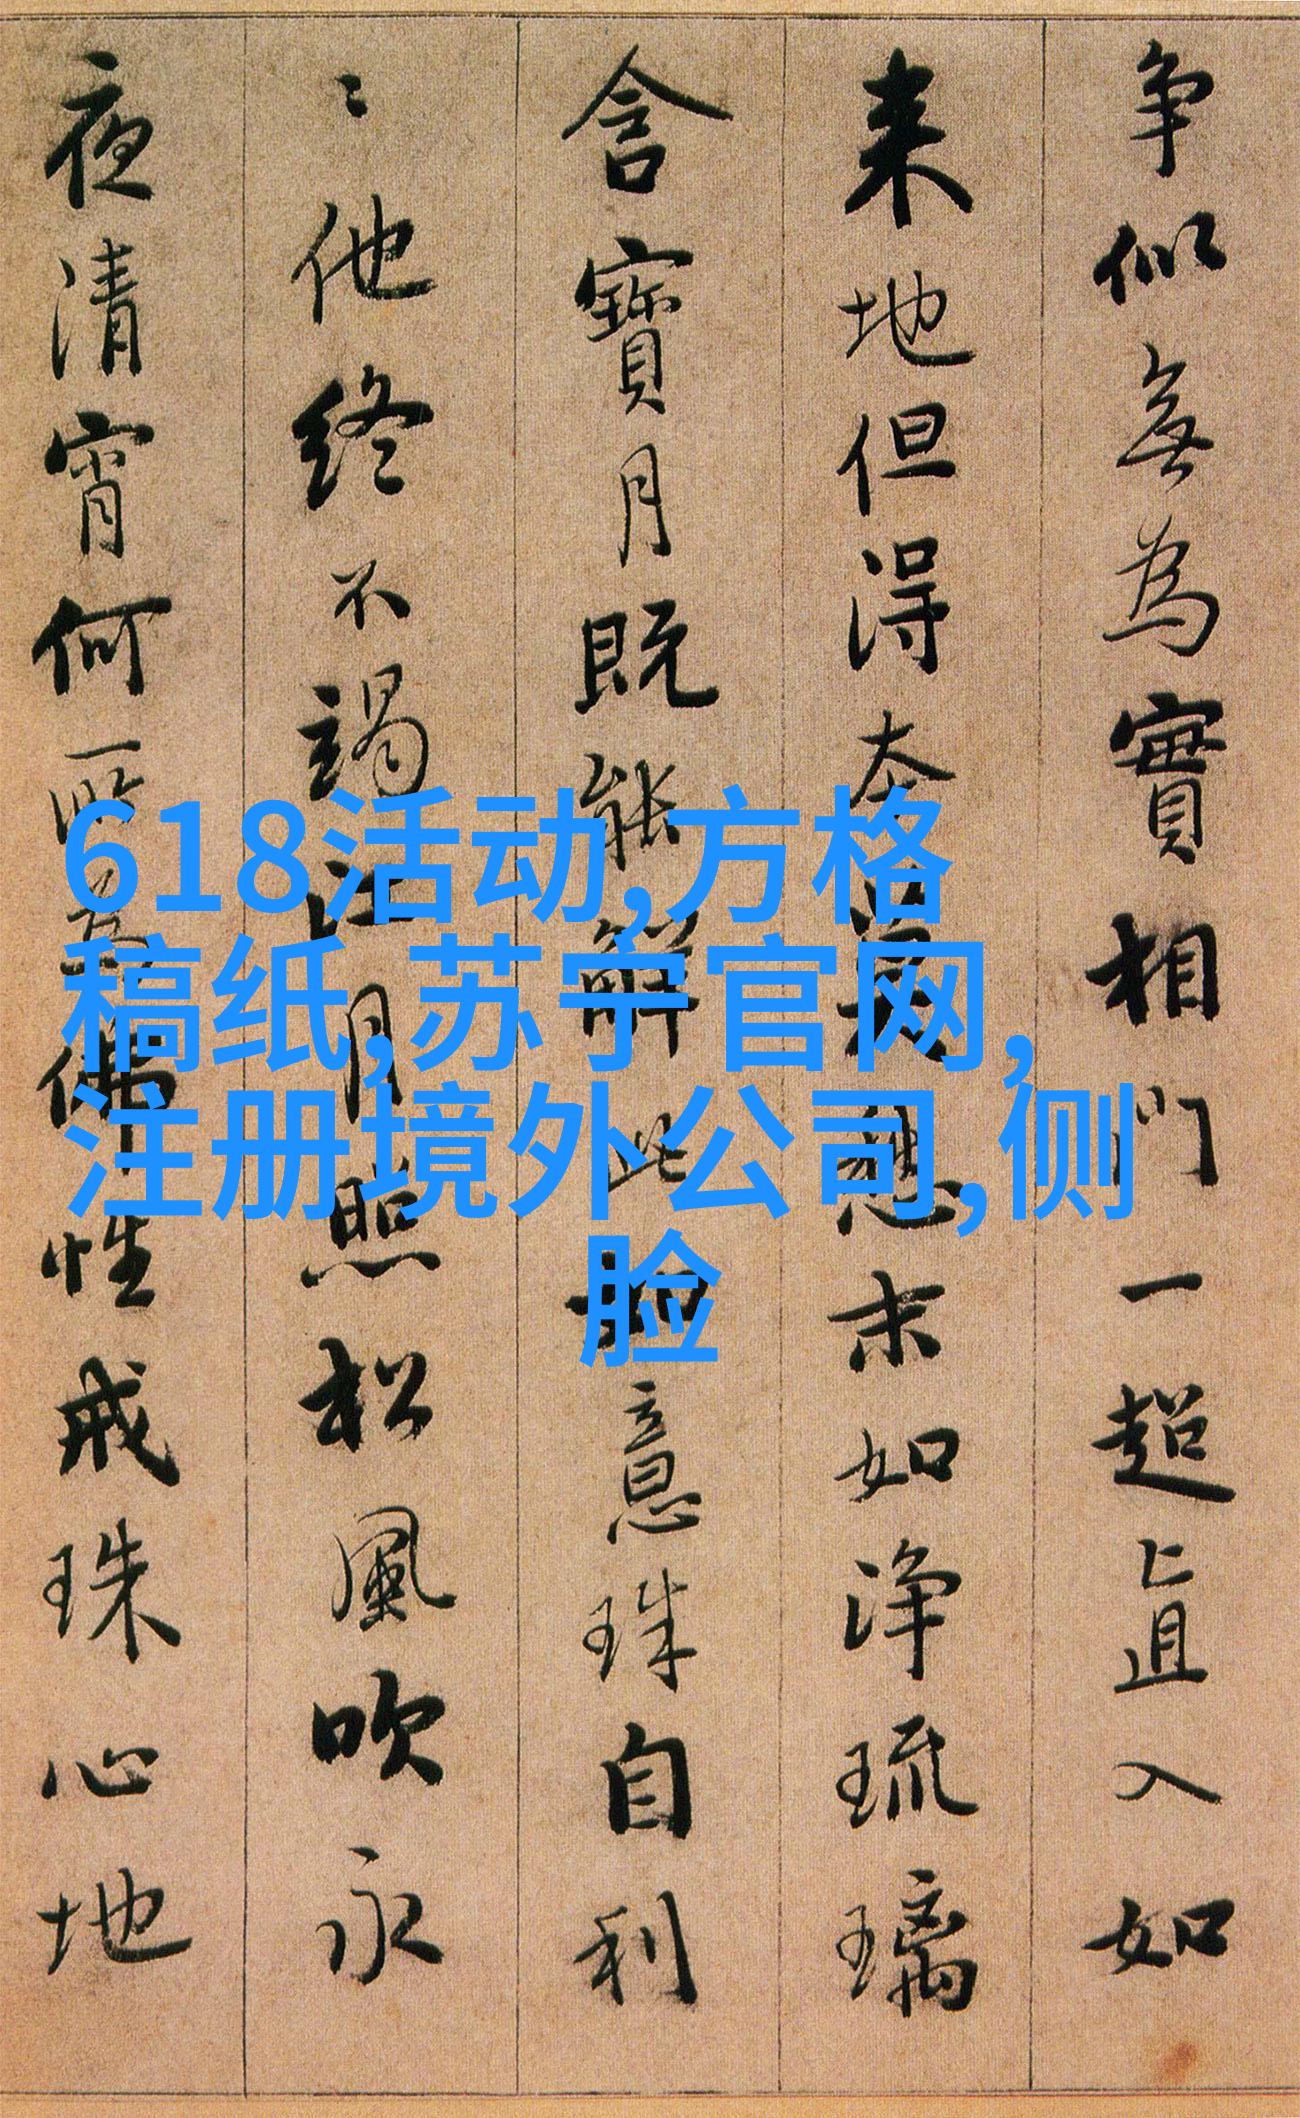 争似無為實相門一超直入如
来地但得本莫愁末如淨琉璃
含寶月既能解此如意珠自利
〻他終不竭江月照松風吹永
夜清宵何所為佛性戒珠心地
618活动,方格
稿纸,苏宁官网,
注册境外公司,侧
脸